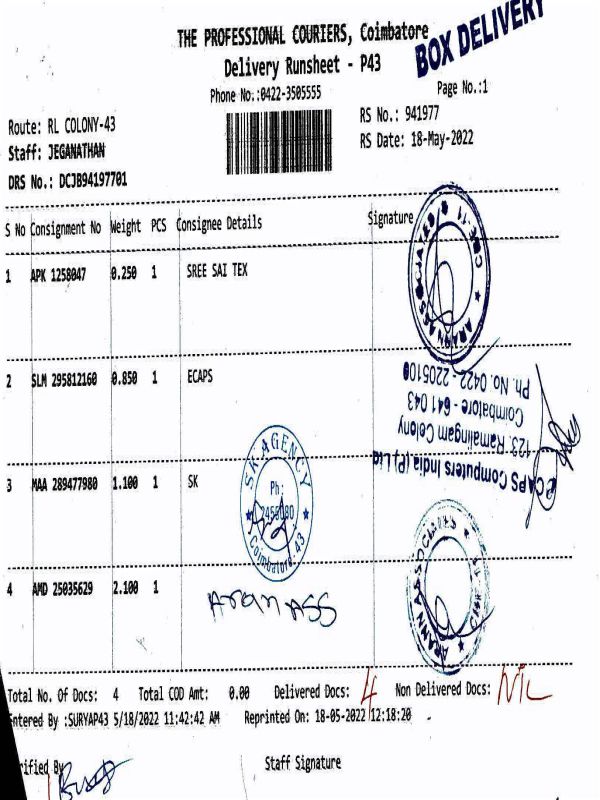 THE PROFESSIONAL COURIERS, Coimbatore
BOX DELIVERY
Delivery Runsheet - P43
Phone No.:0422-3505555
Page No.:1
Route: RL COLONY-43
RS No.: 941977
Staff: JEGANATHAN
RS Date: 18-May-2022
DRS No.: DCJB94197701
S No Consignment No Weight PCS Consignee Details Signature
1 APK 1258047 0.250 1 SREE SAI TEX
ARANN ASSOCIATES
CBE-11
2 SLM 295812160 0.850 1 ECAPS
CAPS Computers India (P) Ltd
123, Ramalingam Colony
Coimbatore - 641 043
Ph. No. 0422 - 2205100
3 MAA 289477980 1.100 1 SK
SK AGENCY
Ph:
Coimbatore-43
4 AMD 25035629 2.100 1
Aran ASS
ARANN ASSOCIATES
Total No. Of Docs: 4 Total COD Amt: 0.00 Delivered Docs: 4 Non Delivered Docs: NIL
Entered By :SURYAP43 5/18/2022 11:42:42 AM Reprinted On: 18-05-2022 12:18:20
rified By
Staff Signature